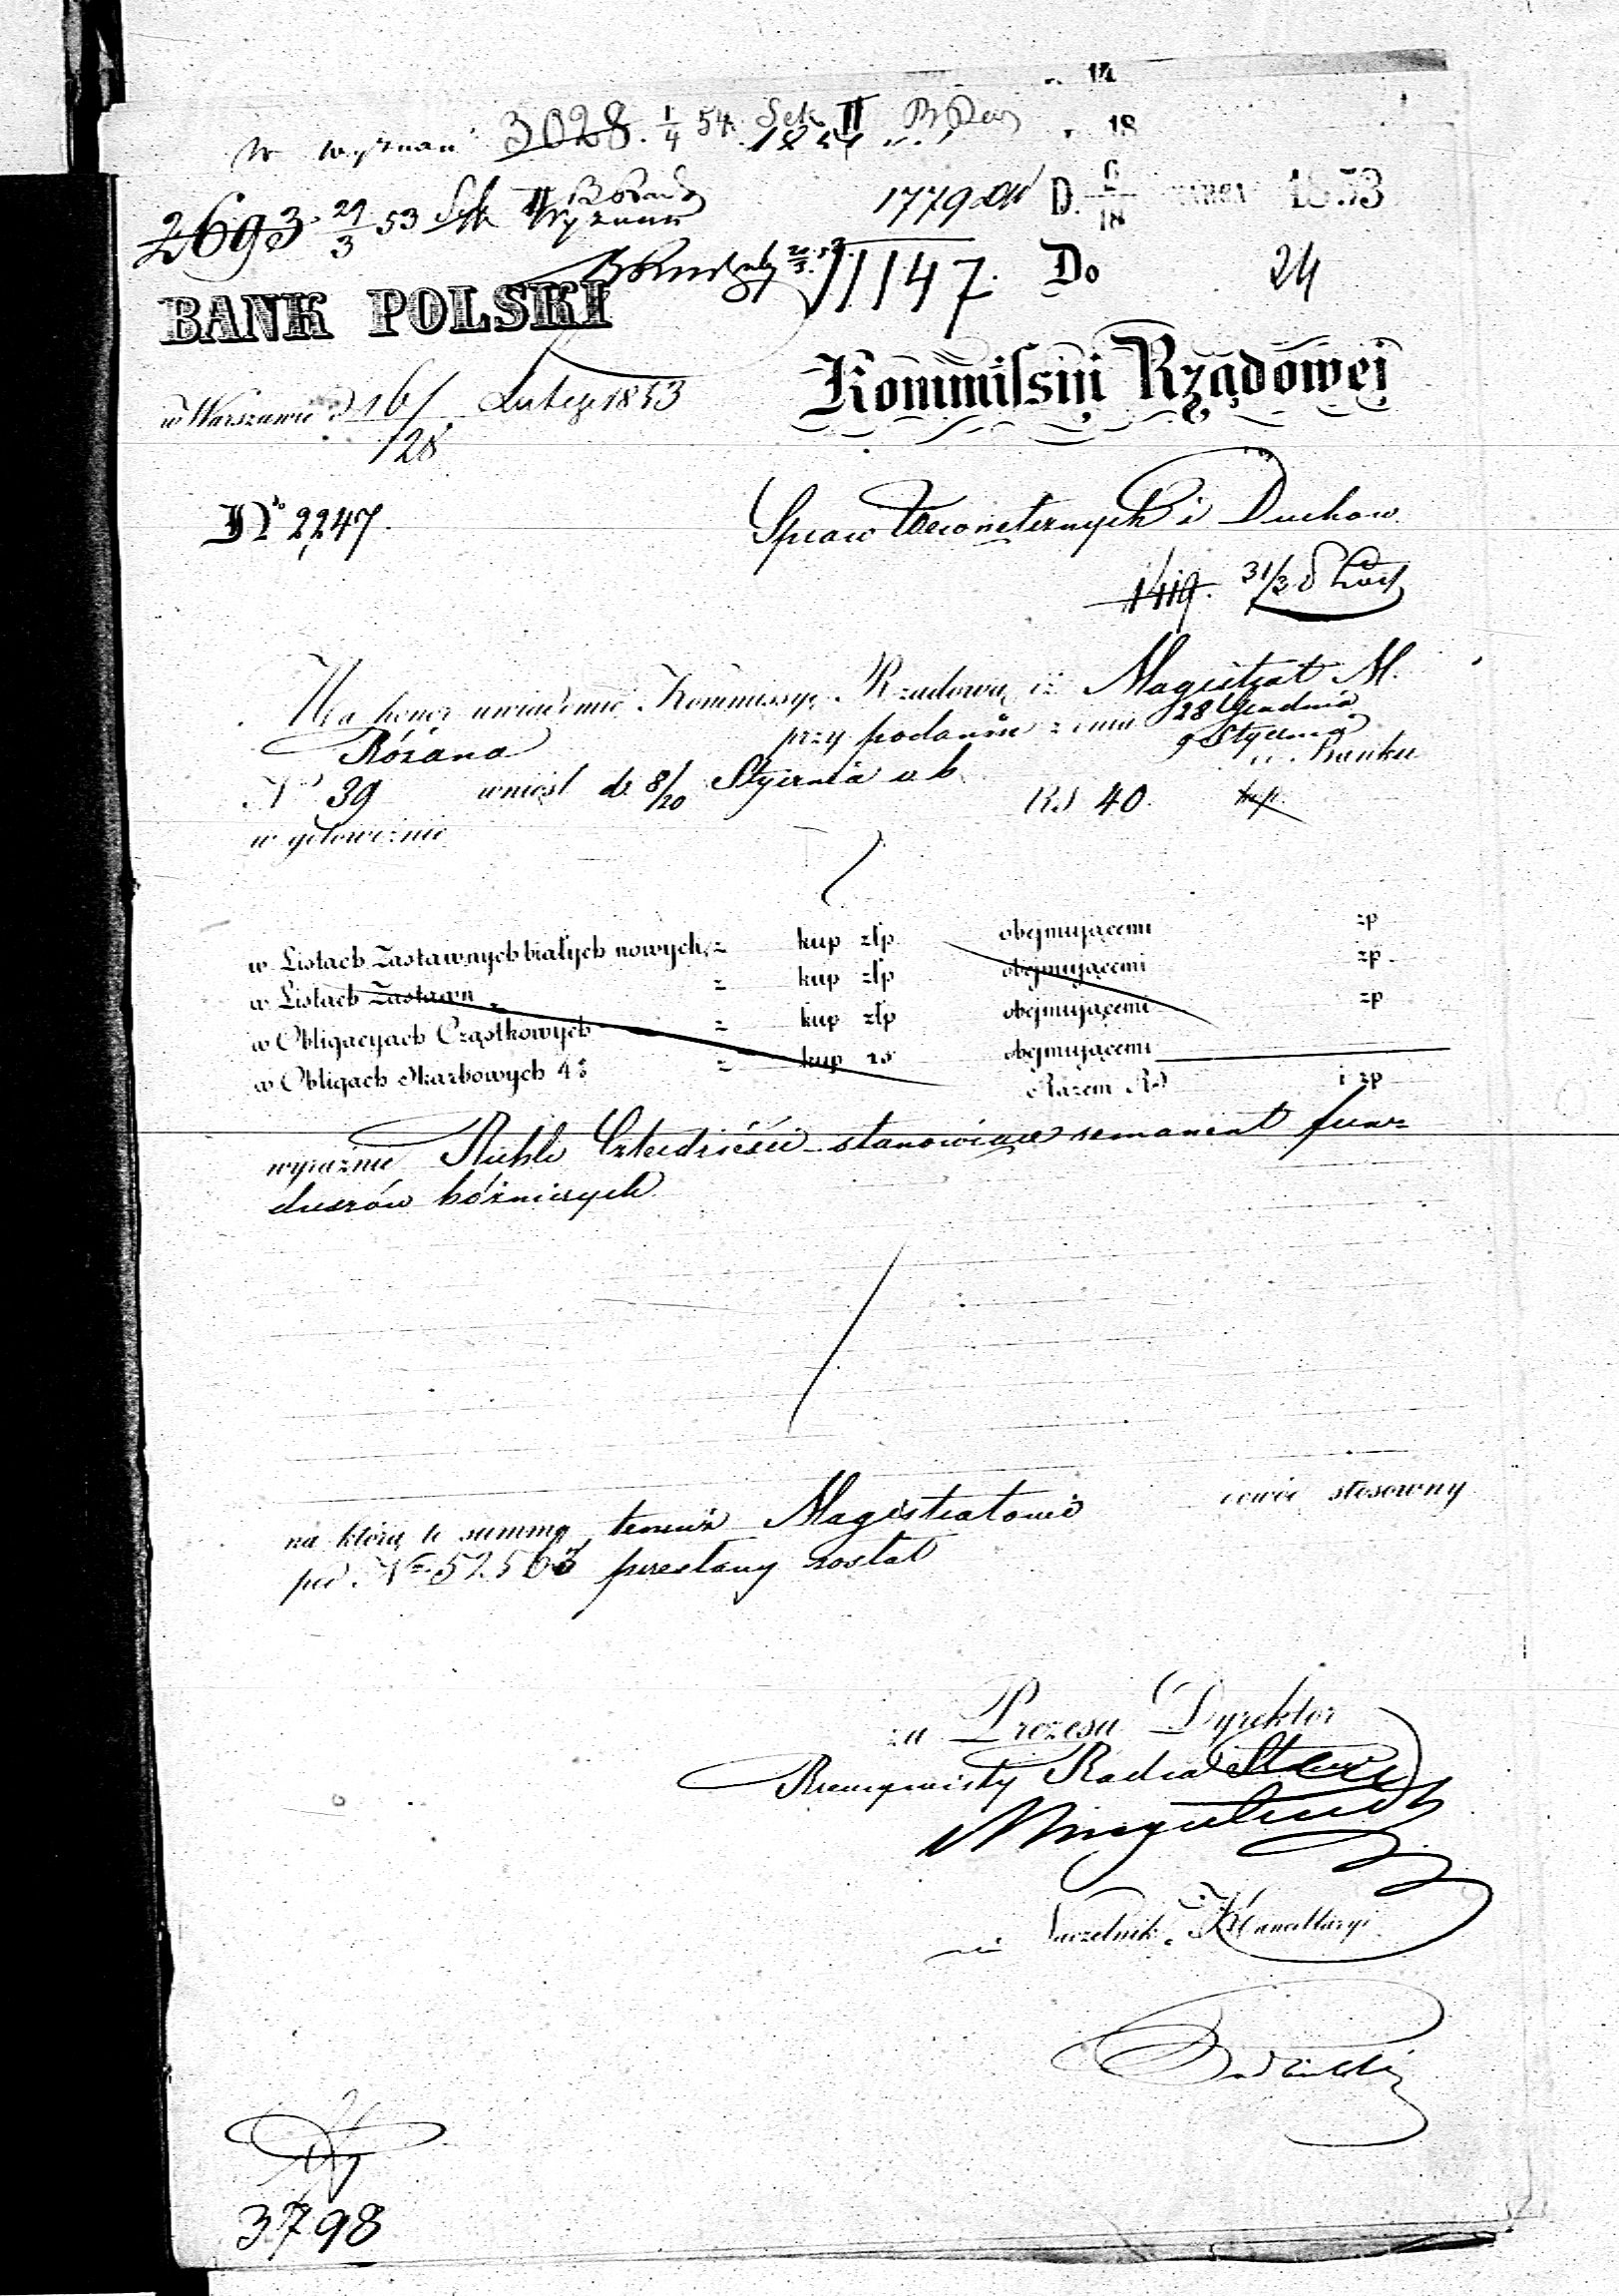 14
18
w wyznań 3028. 1/4 54. Sek II
2693. 29/3 53 Sek II Wyznań
1779 D. 6/18 MARCA 1853
11147.
Do 24
BANK POLSKI
Kommissyi Rządowej
w Warszawie d 16/28 Lutego 1853
No 2247.
Spraw Wewnętrznych i Duchow.
1419. 31/3
Ma honor uwiadomić Kommissyę Rządową iż Magistrat M.
Różana przy podaniu z dnia 28 Grudnia / 9 Stycznia
No 39 wniósł d. 8/20 Stycznia r. b. do Banku
w gotowiźnie RS 40. kop.
w Listach Zastawnych białych nowych, z kup złp obejmującemi zp
w Listach Zastawn z kup złp obejmującemi zp
w Obligacyach Cząstkowych z kup złp obejmującemi zp
w Obligach Skarbowych 4% z kup rs obejmującemi
Razem RS i zp
wyraźnie Rubli Czterdzieści stanowiące remanent fun=
duszów bóżniczych
na którą to summę temuż Magistratowi dowód stosowny
pod No 52563 przesłany został
za Prezesa Dyrektor
Rzeczywisty Radca Stanu
Naczelnik Kancellaryi
3798